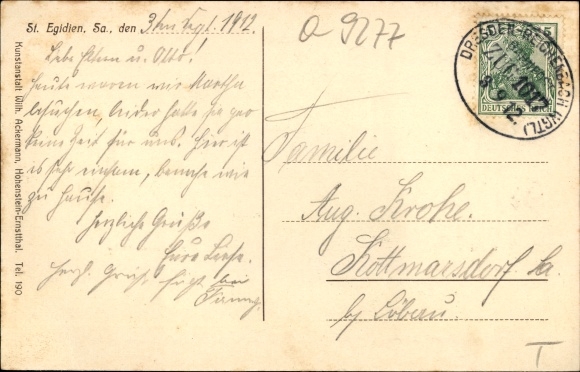 St. Egidien, Sa., den 3ten Sept. 1912
Liebe Eltern u. Otto!
Heute waren wir Martha
besuchen, leider hatte sie gar
keine Zeit für uns. Hier ist
es sehr einsam, beinahe wie
zu Hause.
Herzliche Grüße
Eure Liese.
Herzl. Gruß fügt bei
Kunstanstalt Wilh. Ackermann, Hohenstein-Ernstthal. Tel. 190
O 9277
DRESDEN-REICHENBACH (VGTL)
5
DEUTSCHES REICH
Familie
Aug. Krohe.
Kottmarsdorf Sa
by Löbau.
T